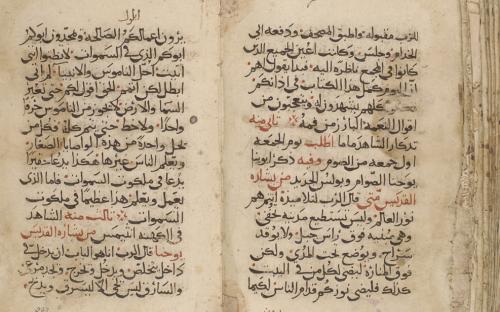 للرب مقبوله واطبق المصحف ودفعه الى
الخدام وجلس وكانت اعين الجميع الذين
كانوا في المجمع ناظره اليه فبدا يقول لهم
ان اليوم كمل هذا الكتاب في اذانكم
وكلهم يشهدون له ويتعجبون من
اقوال النعمه البارز من فمه ثاني منه
تذكار الشاهد ماما اطلب يوم الجمعه
اول جمعه من الصوم وفيه ذكر ابونا
يوحنا الصوام وبولس الجديد من بشاره
القديس متى قال الرب لتلاميذه انتم هم
نور العالم وليس يستطيع مدينه تخفى
وهي مبنيه فوق راس جبل ولا يوقد
سراج ويوضع تحت ولكن
فوق المناره ليضي لكل من في البيت
كذلك فليضي نوركم قدام الناس لكيما
ايلول
يرون اعمالكم الصالحه ويمجدون
ابوكم الذي في السموات ولا تظنوا اني
اتيت احل الناموس والانبيا لم اتي
ابطل لكن اتمم الحق اقول لكم حتى تعبر
السما والارض لا يجوز من الناموس
واحدا ولا خط حتى يتم كل فكل من
يحل واحده من هذه الوصايا الصغار
ويعلم الناس هكذا يدعا صغيرا
يدعا في ملكوت السموات فاما الذي
يعمل ويعلم هذا عظيما في ملكوت
السموات ثالث منه الشاهد
في الكهنه انتيمس من بشاره القديس
يوحنا قال الرب انا هو الباب ان دخل بي
احد يخلص ويدخل ويخرج ويجد مرعى
والسارق ليس ياتي الا ليسرق ويذبح